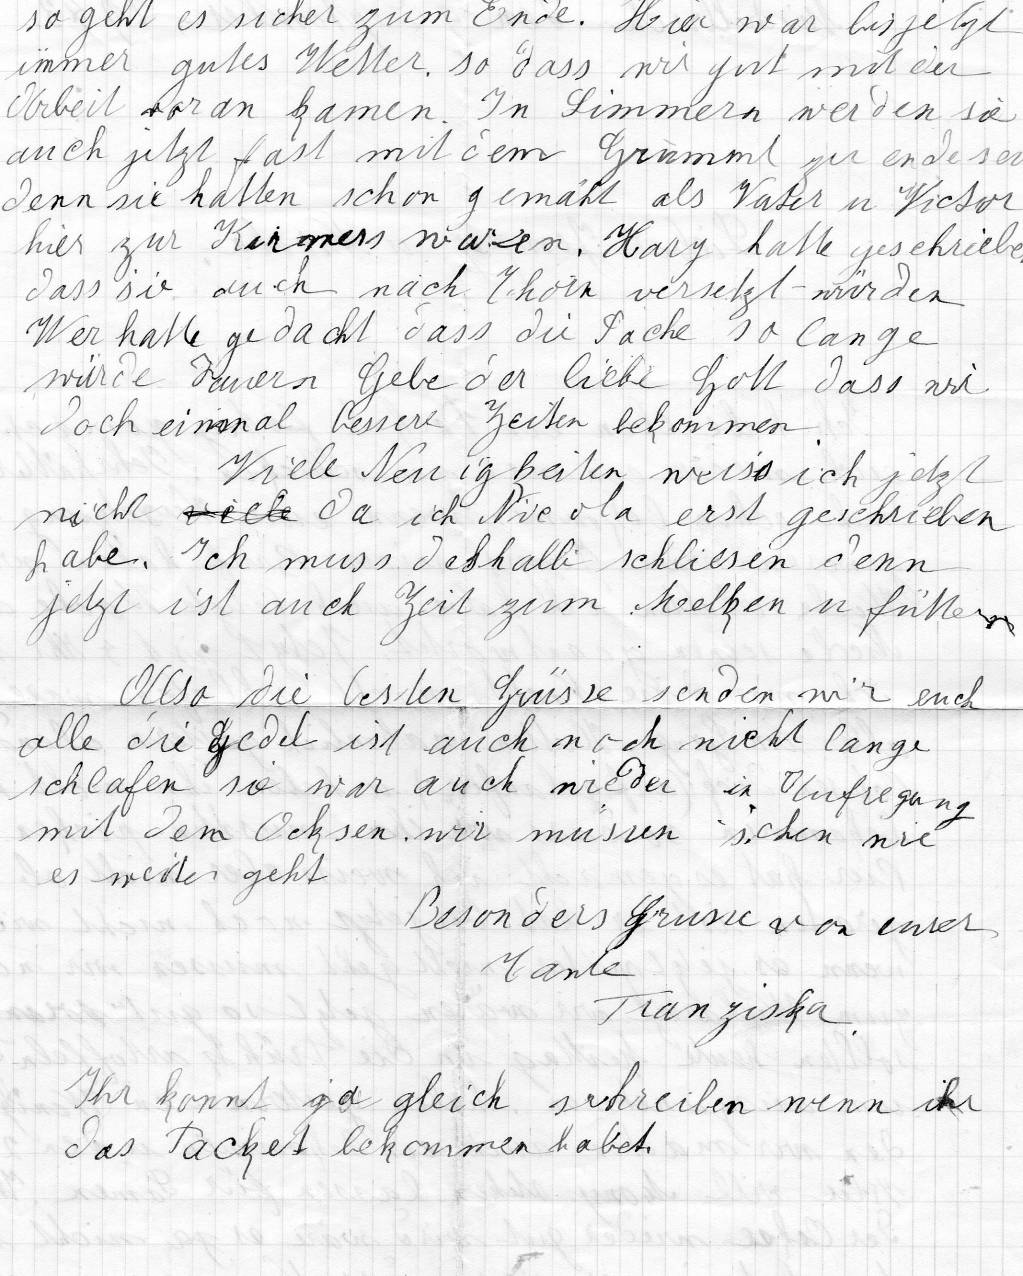 so geht es sicher zum Ende. Hier war bis jetzt
immer gutes Wetter. so dass wir gut mit der
Arbeit voran kamen. In Simmern werden sie
auch jetzt fast mit dem Grumml zu ende sei
denn sie hatten schon gemäht als Vater u Victor
hier zur Kirmers waren. Hary hatte geschrieben
dass sie auch nach Thorn versetzt würden
Wer hatte gedacht dass die Sache so lange
würde dauern Gebe der liebe Gott dass wir
doch einmal bessere Zeiten bekommen
Viele Neuigkeiten weiss ich jetzt
nicht da ich Nicola erst geschrieben
habe. Ich muss deshalb schliesen denn
jetzt ist auch Zeit zum Melken u füttern
Also die besten Grüsse senden wir euch
alle die Gedel ist auch noch nicht lange
schlafen sie war auch wieder in Aufregung
mit dem Ocksen. wir müssen sehen wie
es weiter geht
Besonders Grusse von eurer
Tante
Franziska.
Ihr konnt ja gleich schreiben wenn ihr
das Packet bekommen habet.